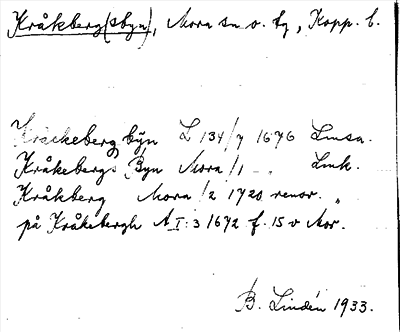 Kråkberg(sbyn), Mora sn o. tg, Kopp. l.
Kråckeberg byn L 134/7 1676 Lmsa.
Kråkebergs Byn Mora/1 - " Lmk.
Kråkberg Mora/2 1720 renov. "
på Kråkebergh A I:3 1672 f. 15 v Mor.
B. Lindén 1933.